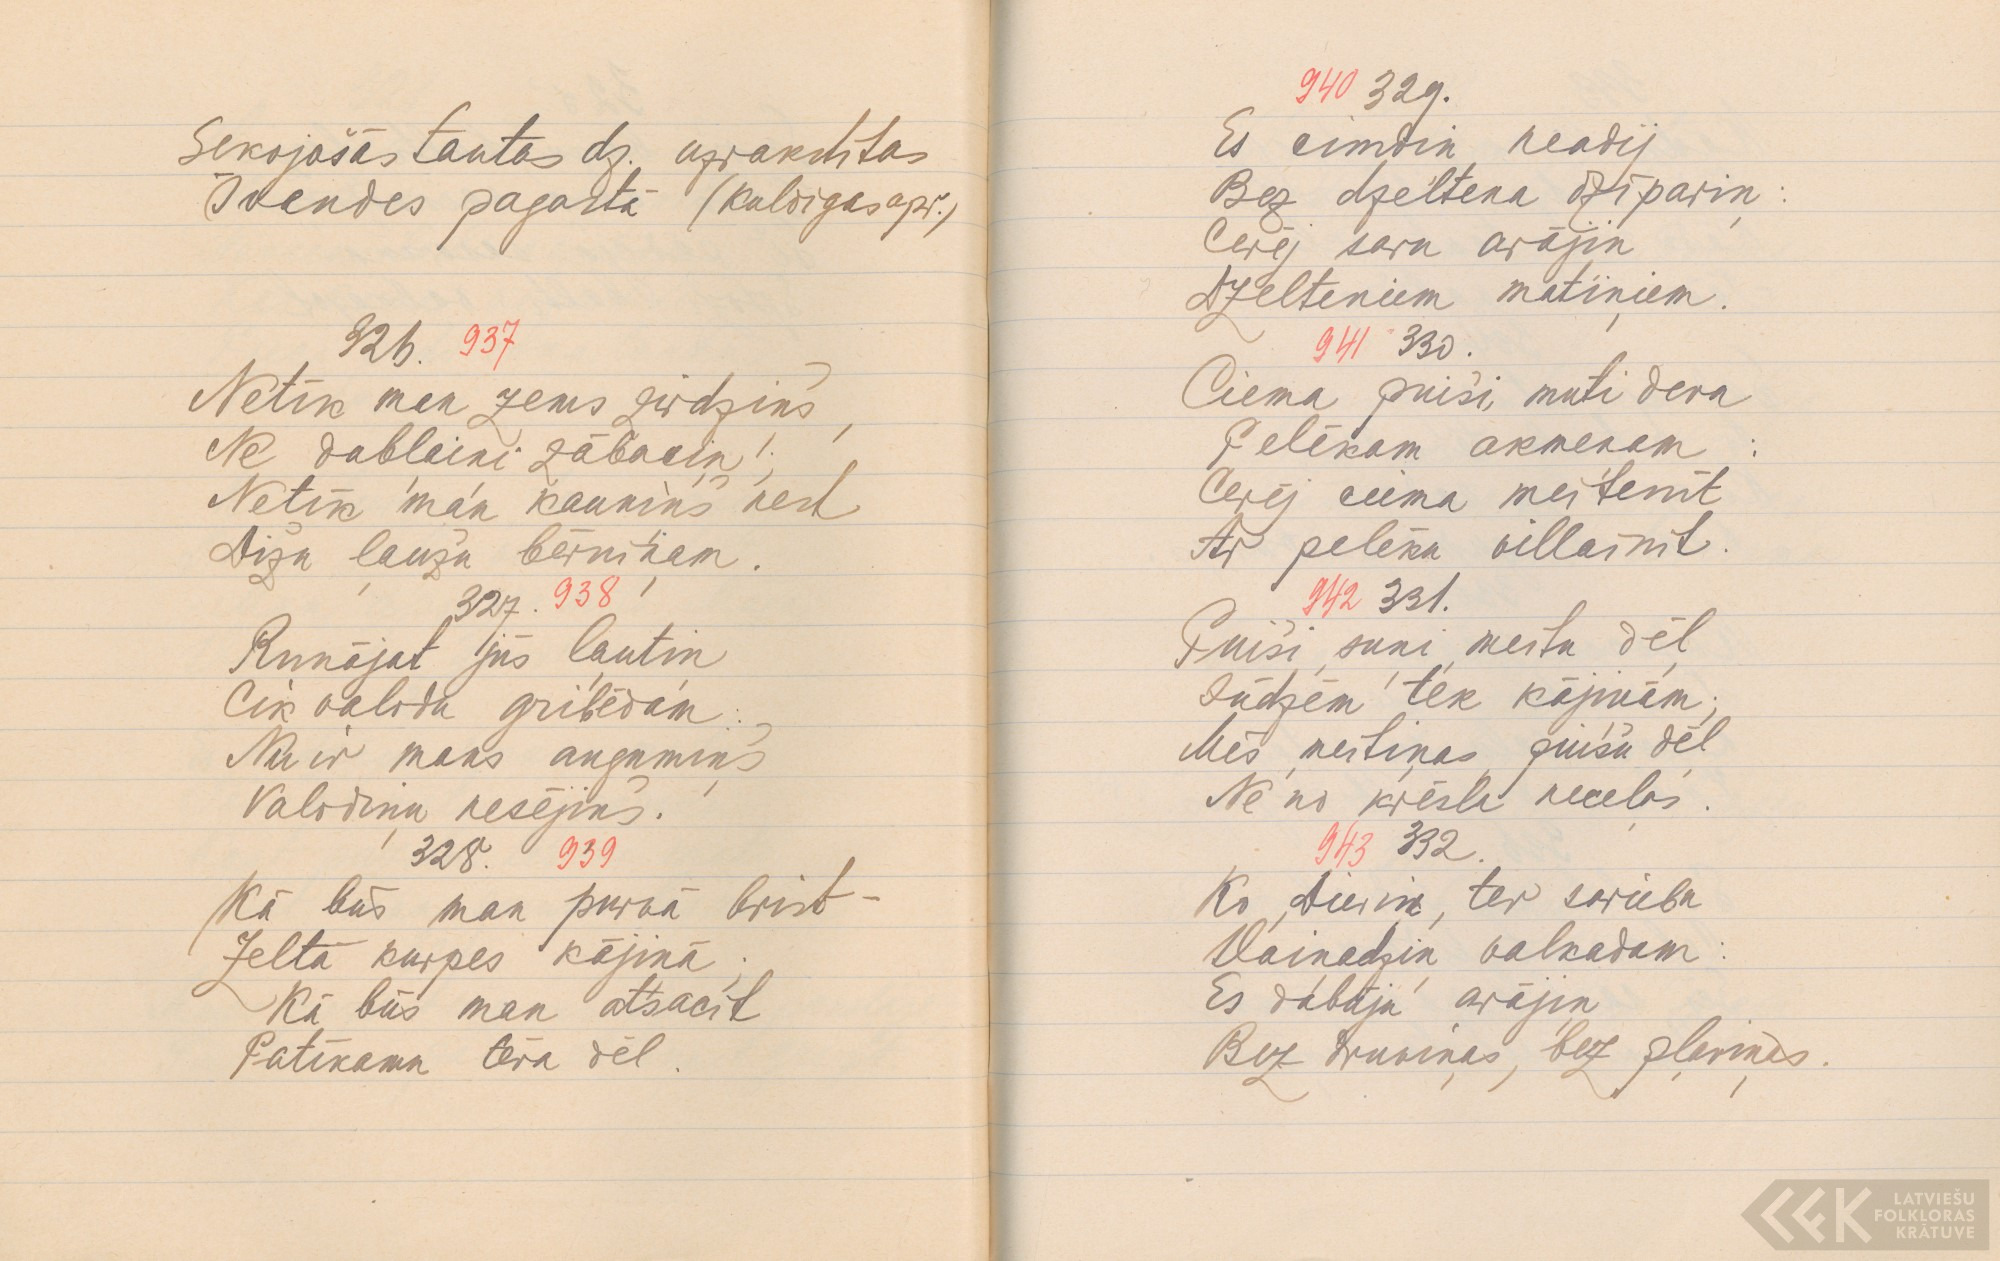 Sekojošās tautas dz. uzrakstītas
Īvandes pagastā (Kuldīgas apr.)
326. 937
Netīk man zems zirdziņš,
Ne dablaini zābaciņ';
Netīk man kauniņš nest
Dižu ļaužu bērniņam.
327. 938
Runājat jūs ļautiņ
Cik valodu gribēdam:
Nu ir mans augumiņš
Valodiņu nesējiņš.
328. 939
Kā būs man purvā brist –
Zelta kurpes kājiņā;
Kā būs man atsacīt
Patīkamu tēra dēļ.
940 329.
Es cimdiņ neadīj
Bez dzeltena dzīpariņ:
Cerēj savu arājiņ
Dzelteniem matiņiem.
941 330.
Ciema puiši muti deva
Pelēkam akmeņam:
Cerēj ciema meitenīt
Ar pelēku villainīt.
942 331.
Puiši, suņi, meitu dēļ
Sūdzēm tek kājiņām;
Mēs, meitiņas, puišu dēļ
Ne no krēsla necelās.
943 332.
Ko, Dieviņ, tev sarieba
Vaiņadziņ valkadam:
Es dabūju arājiņ
Bez druviņas, bez pļaviņas.
LATVIEŠU
FOLKLORAS
KRĀTUVE